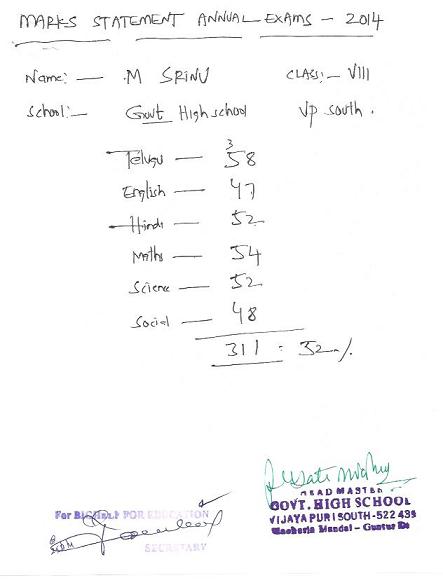 MARKS STATEMENT ANNUAL EXAMS - 2014
Name:- M SRINU CLASS:- VIII
School:- Govt High school VP South.
Telugu - 58
English - 47
Hindi - 52
Maths - 54
Science - 52
Social - 48
3
311 = 52%
HEAD MASTER
GOVT. HIGH SCHOOL
For BIG HELP FOR EDUCATION
VIJAYAPURI SOUTH-522 439
Macherla Mandal - Guntur Dt
SECRETARY